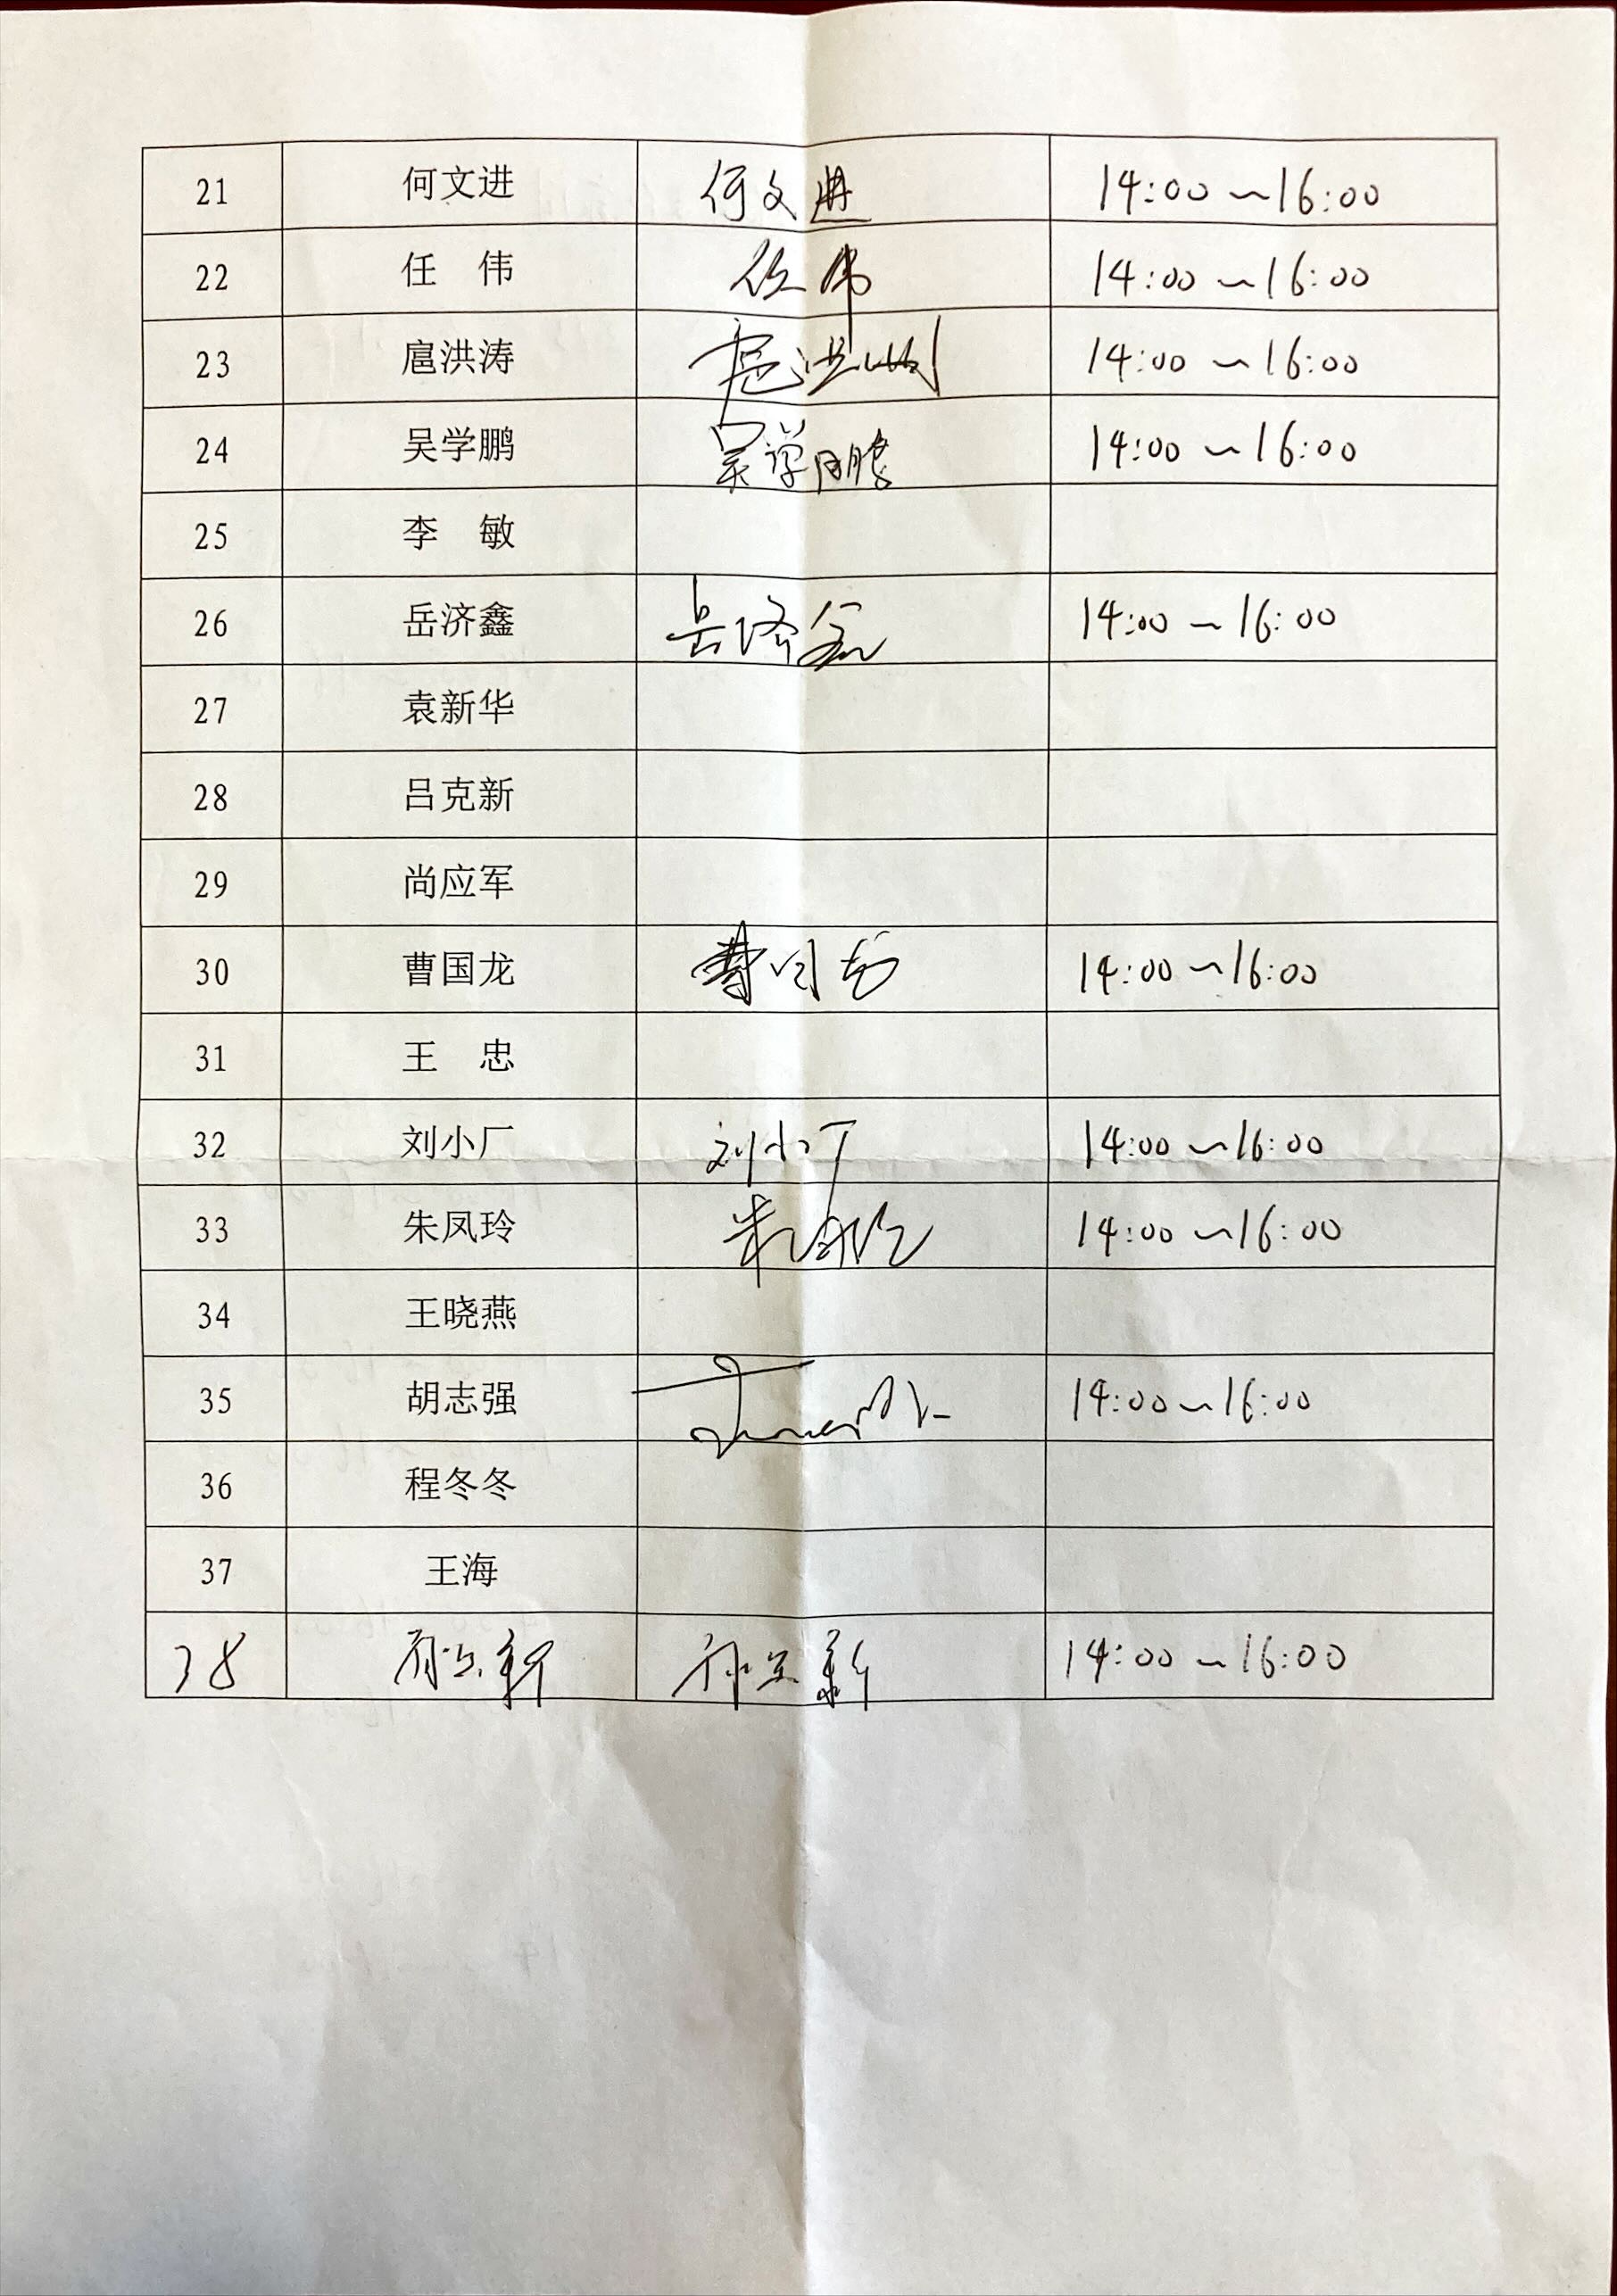 21 何文进 何文进 14:00~16:00
22 任 伟 任伟 14:00~16:00
23 扈洪涛 扈洪涛 14:00~16:00
24 吴学鹏 吴学鹏 14:00~16:00
25 李 敏
26 岳济鑫 岳济鑫 14:00~16:00
27 袁新华
28 吕克新
29 尚应军
30 曹国龙 曹国龙 14:00~16:00
31 王 忠
32 刘小厂 刘小厂 14:00~16:00
33 朱凤玲 朱凤玲 14:00~16:00
34 王晓燕
35 胡志强 14:00~16:00
36 程冬冬
37 王海
38 14:00~16:00